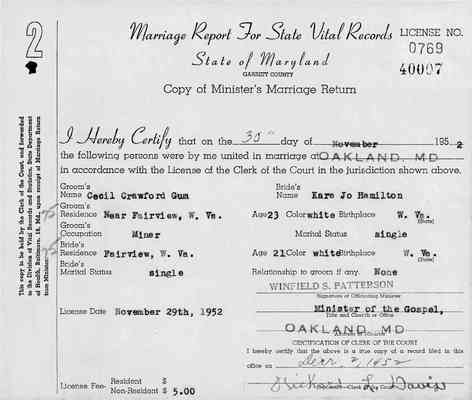 2
Marriage Report For State Vital Records
LICENSE NO.
0769
State of Maryland
40007
GARRETT COUNTY
Copy of Minister's Marriage Return
This copy to be held by the Clerk of the Court, and forwarded
to the Division of Vital Records and Statistics, State Department
of Health, Baltimore, 18, Md., upon receipt of Marriage Return
from Minister.
I Hereby Certify that on the 30" day of November 1952
the following persons were by me united in marriage at OAKLAND, MD
in accordance with the License of the Clerk of the Court in the jurisdiction shown above.
Groom's Name Cecil Crawford Gum
Bride's Name Kara Jo Hamilton
Groom's Residence Near Fairview, W. Va.
Age 23 Color white Birthplace W. Va.
(State)
Groom's Occupation Miner
Marital Status single
Bride's Residence Fairview, W. Va.
Age 21 Color white Birthplace W. Va.
(State)
Bride's Marital Status single
Relationship to groom if any. None
WINFIELD S. PATTERSON
Signature of Officiating Minister
License Date November 29th, 1952
Minister of the Gospel,
Title and Church or Office
OAKLAND, MD
Address of Minister
CERTIFICATION OF CLERK OF THE COURT
I hereby certify that the above is a true copy of a record filed in this
office on Decr. 2, 1952
License Fee- Resident $
Non-Resident $ 5.00
Richard L. Davis
Clerk of Court